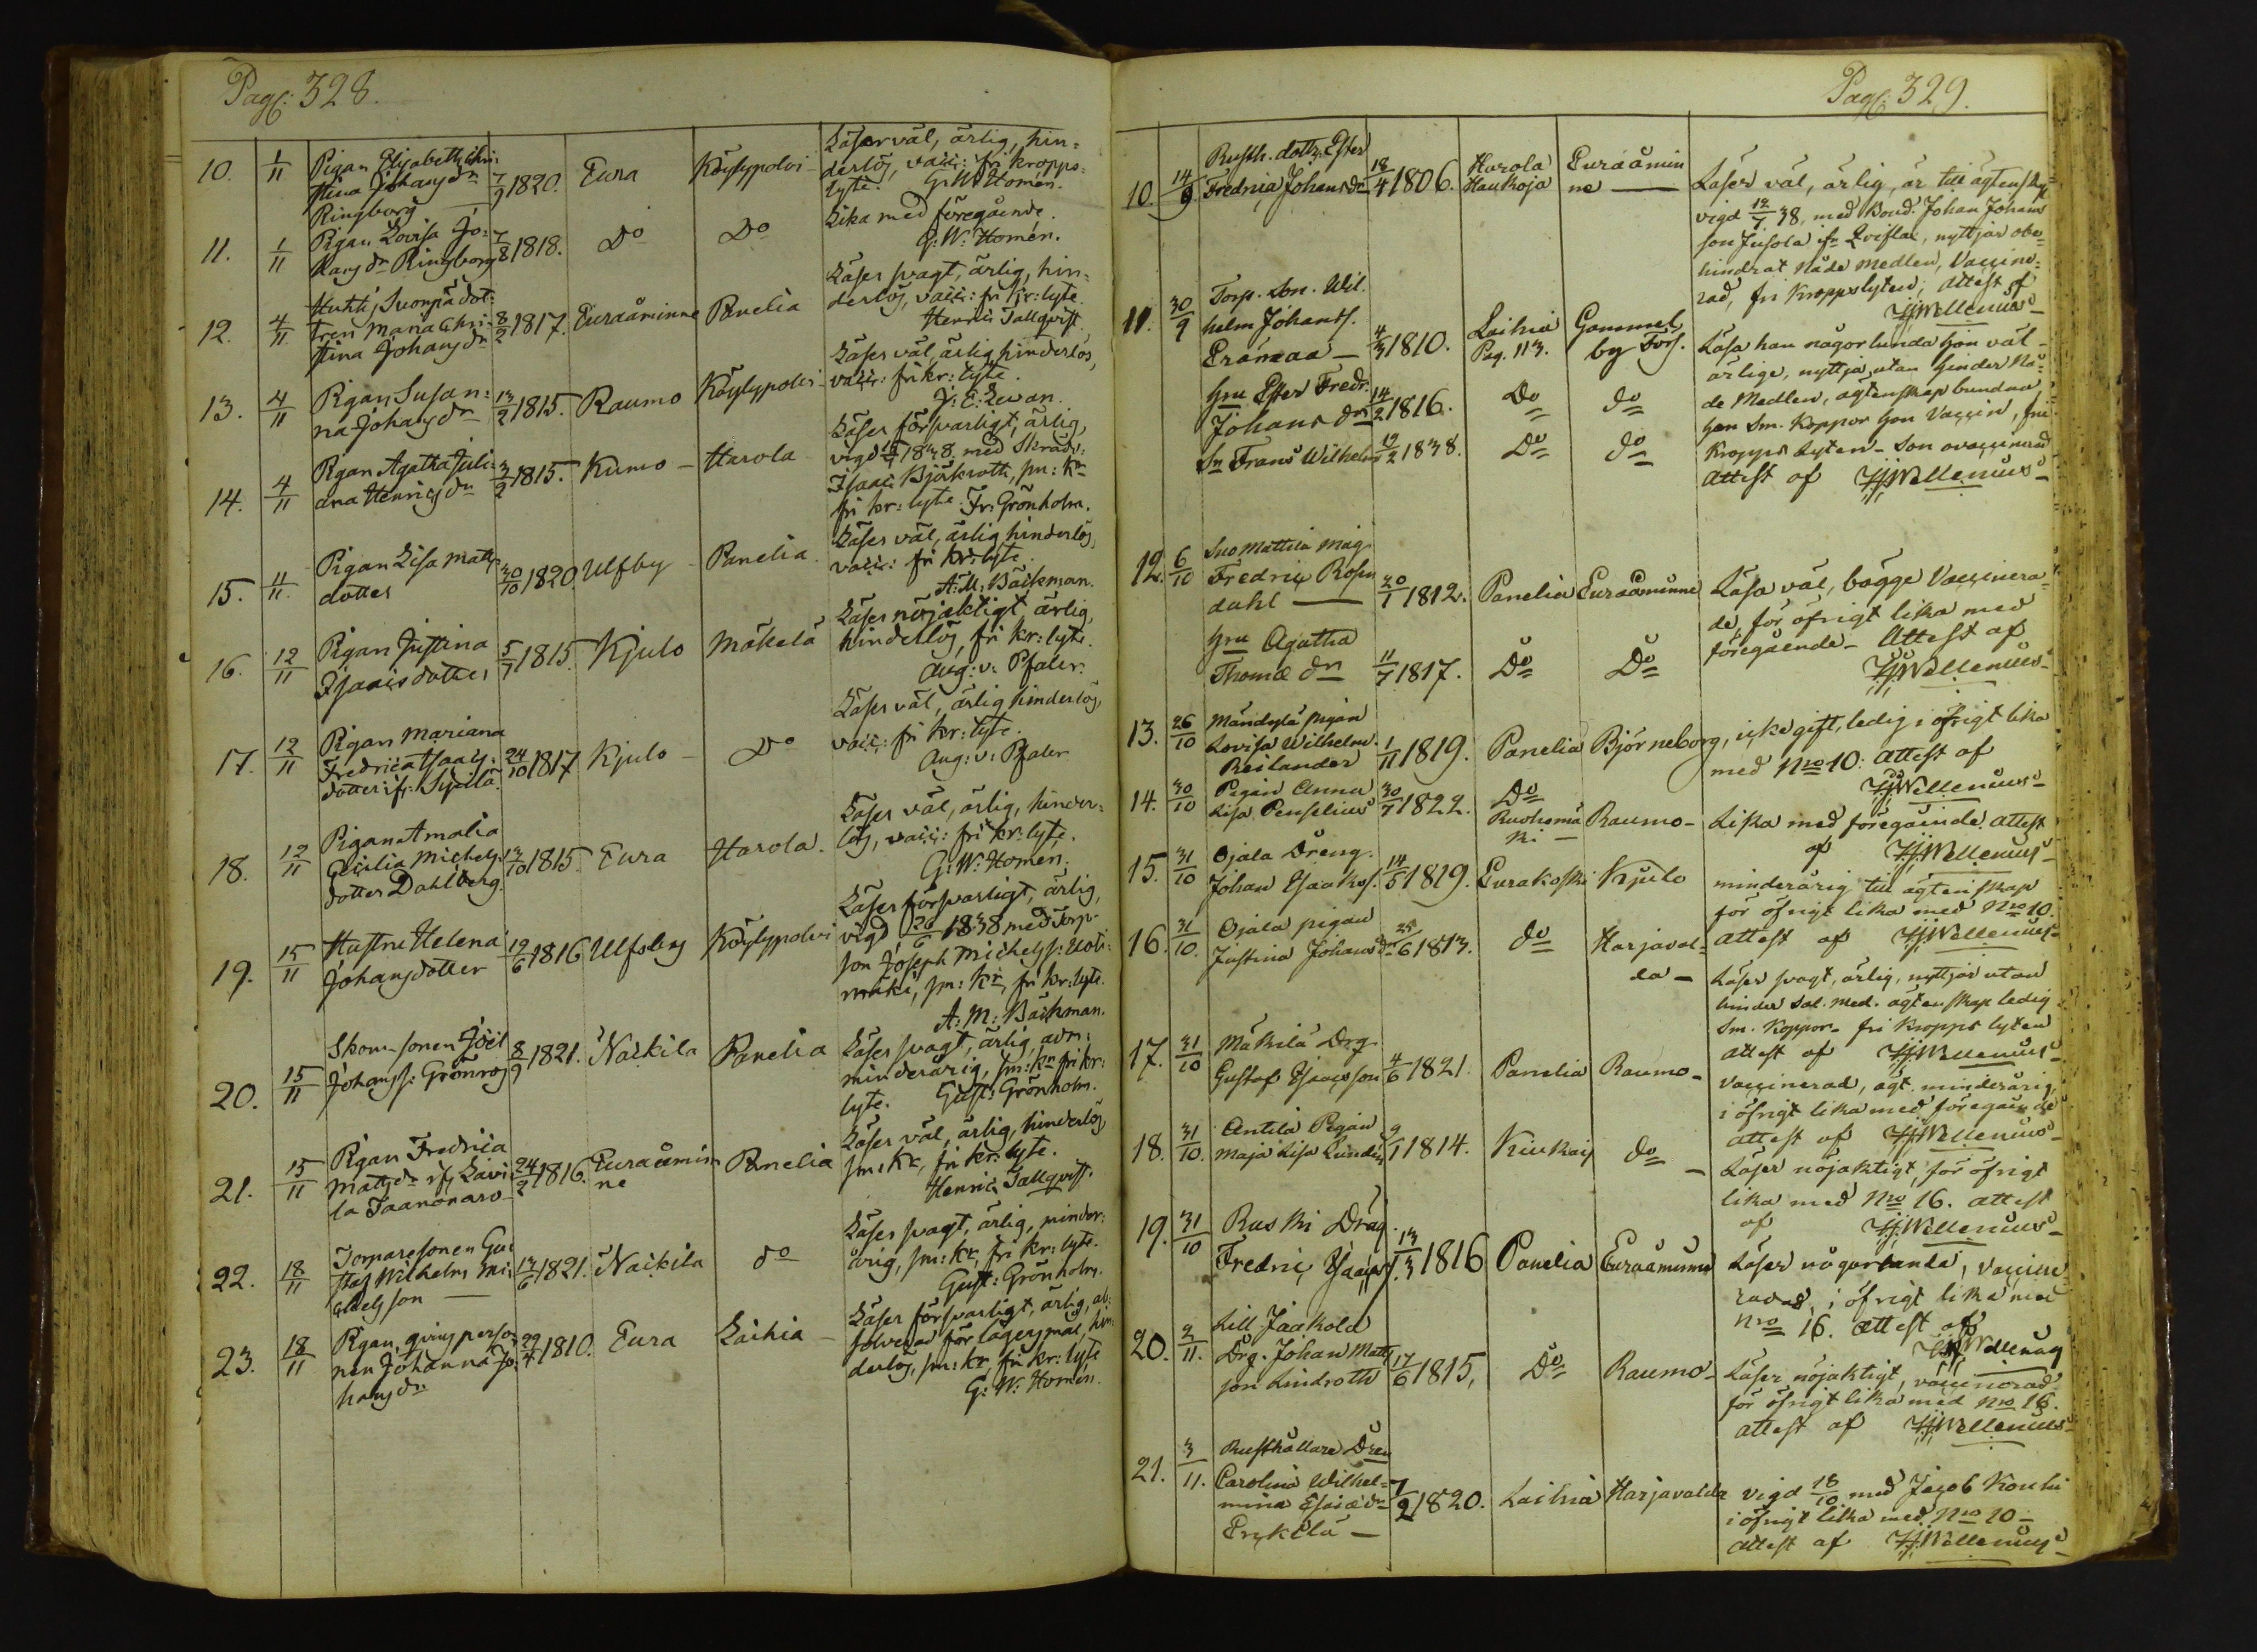 Pag: 328.
10. 1/11 Pigan Elisabeth Chri-
stina Johansdr
Ringborg 7/9 1820. Eura Köylypolvi
Läser väl, ärlig, hin-
derlös, vacc: fri kropps-
lyte. G:W: Homén.
11. 1/11 Pigan Lovisa Jo-
hansdr Ringborg 7/8 1818. Do Do
Lika med föregående.
G:W: Homén.
12. 4/11 dot-
tren Maria Chri-
stina Johansdr 8/2 1817. Euraåminne Panelia
Läser svagt, ärlig, hin-
derlös, vacc: fri kr: lyte.
Henric Tallqvist.
13. 4/11 Pigan Susan-
na Johansdr 13/2 1815. Raumo Köylypolvi
Läser väl, ärlig, hinderlös,
vacc: fri kr: lyte.
J:E: Levan.
14. 4/11 Pigan Agatha Juli-
ana Henricsdr 3/2 1815. Kumo Harola
Läser försvarligt, ärlig,
vigd 1838, med Skrädd:
Isaac Björkroth, sm: kr
fri kr: lyte. Fr: Grönholm.
15. 11/11. Pigan Lisa Matts
dotter 30/10 1820. Ulfsby Panelia
Läser väl, ärlig, hinderlös,
vacc: fri kr: lyte.
A:M: Bäckman.
16. 12/11 Pigan Justina
Isaacsdotter 5/7 1815. Kjulo Mäkelä
Läser nöjaktigt, ärlig,
hinderlös, fri kr: lyte.
Aug: v: Pfaler.
17. 12/11 Pigan Mariana
Fredrica Isaacs-
dotter ifr: Sipilä. 24/10 1817 Kjulo Do
Läser väl, ärlig, hinderlös,
vacc: fri kr: lyte.
Aug: v: Pfaler
18. 12/11 Pigan Amalia
Cecilia Michels-
dotter Dahlberg. 13/10 1815. Eura Harola.
Läser väl, ärlig, hinder-
lös, vacc: fri kr: lyte.
G:W: Homén.
19. 15/11 Hustru Helena
Johansdotter 19/6 1816 Ulfsby Köylypolvi
Läser försvarligt, ärlig,
vigd 26/6 1838 med Torp-
son Joseph Michelss:
mäki, sm: kr, fri kr: lyte.
A:M: Bäckman.
20. 15/11 Skom-sonen Joel
Johanss: Grönroos 8/9 1821. Nackila Panelia
Läser svagt, ärlig,
minderårig, sm: kr fri kr:
lyte. Gust: Grönholm.
21. 15/11 Pigan Fredrica
Mattsdr ifr Lavi-
la 24/2 1816. Euraåmin-
ne Panelia
Läser väl, ärlig, hinderlös,
sm: kr, fri kr: lyte.
Henric Tallqvist.
22. 18/11 Torparesonen Gus-
taf Wilhelm Mi-
chelsson 13/6 1821. Nackila do
Läser svagt, ärlig, minder-
årig, sm: kr, fri kr: lyte.
Gust: Grönholm.
23. 18/11 Pigan, qvinsperso-
nen Johanna Jo-
hansdr 29/4 1810. Eura Laihia
Läser försvarligt, ärlig, ab-
solverad för lägersmål, hin-
derlös, sm: kr, fri kr: lyte
G:W: Homén.
Pag: 329.
10. 14/9. Rusth. dottr. Ester
Fredrica Johansdr 18/4 1806. Harola
Haukoja Euraåmin
ne
Läser väl, ärlig, är till ägtenskap
vigd 12/7 38, med Bond. Johan Johans
son Jusola ifr, nyttjar obe-
hindrat Nåde Medlen, Vaccine-
rad, fri Kroppslyten, attest af
HjWellenius
11. 30/9 Torp. Son. Wil-
helm Johanss.
Erämaa 4/3 1810. Laihia
Pag. 113. Gammel
by Tors.
Läsa han någorlunda hon väl
ärlige, nyttja utan hinder Nå-
de Medlen, ägtenskap bundna
Hru Ester Fredr.
Johans dr 14/2 1816. Do do
han Sm. Koppor hon Vaccin, fri
Sn Frans Wilhelm 19/2 1838. Do do
Kropps Lyten. Son ovaccinerad
attest af HjWellenius
12. 6/10 Suo Mattila måg
Fredric Rosen
dahl 20/1 1812. Panelia Euraåminne
Läsa väl, bägge Vaccinera-
de, för öfrigt lika med
Hru Agatha
Thomæ dr 11/7 1817. Do Do
föregående. Attest af
HjWellenius
13. 26/10 Mändylä pigan
Lovisa Wilhelm.
Reilander 1/11 1819. Panelia Björneborg, icke gift, ledig i öfrigt lika
med Nro 10: attest af
HjWellenius
14. 30/10 Pigan Anna
Lisa Penselius 30/7 1822. Do
Ruohomä
ki Raumo
Lika med föregående. attest
af HjWellenius
15. 31/10 Ojala Dräng.
Johan Isaakss. 14/5 1819. Eurakoski Kjulo
minderårig till ägtenskap
för öfrigt lika med Nro 10.
attest af HjWellenius
16. 31/10. Ojala pigan
Justina Johansdr 25/6 1813. do Harjaval-
da
Läser svagt, ärlig, nyttjar utan
hinder Sal. med. ägtenskap ledig
Sm. Koppor. fri Kropps lyten
attest af HjWellenius
17. 31/10 Mäkilä Drg.
Gustaf Isaacsson 4/6 1821. Panelia Raumo
Vaccinerad, ägt. minderårig,
i öfrigt lika med föregående
attest af HjWellenius
18. 31/10. Antila Pigan
Maja Lisa Lundin 9/1 1814. Kiukais do
Läser nöjaktigt, för öfrigt
lika med Nro 16. attest
af HjWellenius
19. 31/10 Ruski Dräg.
Fredric Isaacss. 13/3 1816 Panelia Euraåminne
Läser någorlunda, Vaccine-
rad, i öfrigt lika med
Nro 16. attest af
HjWellenius
20. 2/11. Lill Jaakola
Drg. Johan Matts
son Lindroth 17/6 1815, Do Raumo
Läser nöjaktigt, vaccinerad
för öfrigt lika med Nro 16.
attest af HjWellenius
21. 3/11. Rusthållare Dren
Carolina Wilhel-
mina Esaiædr
Erkkilä 7/2 1820. Laihia Harjavalda
vigd 18/10 med Jacob Kouhi
i öfrigt lika med Nro 10
attest af HjWellenius